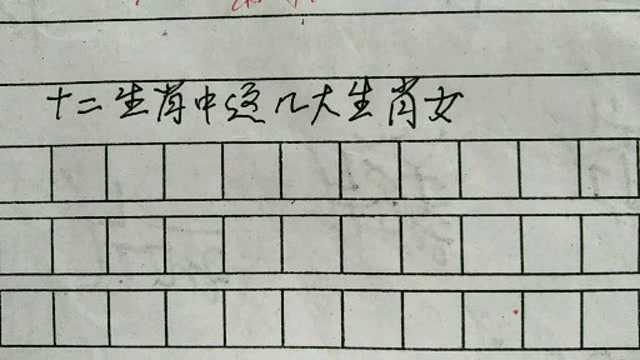 十二生肖中这几大生肖女